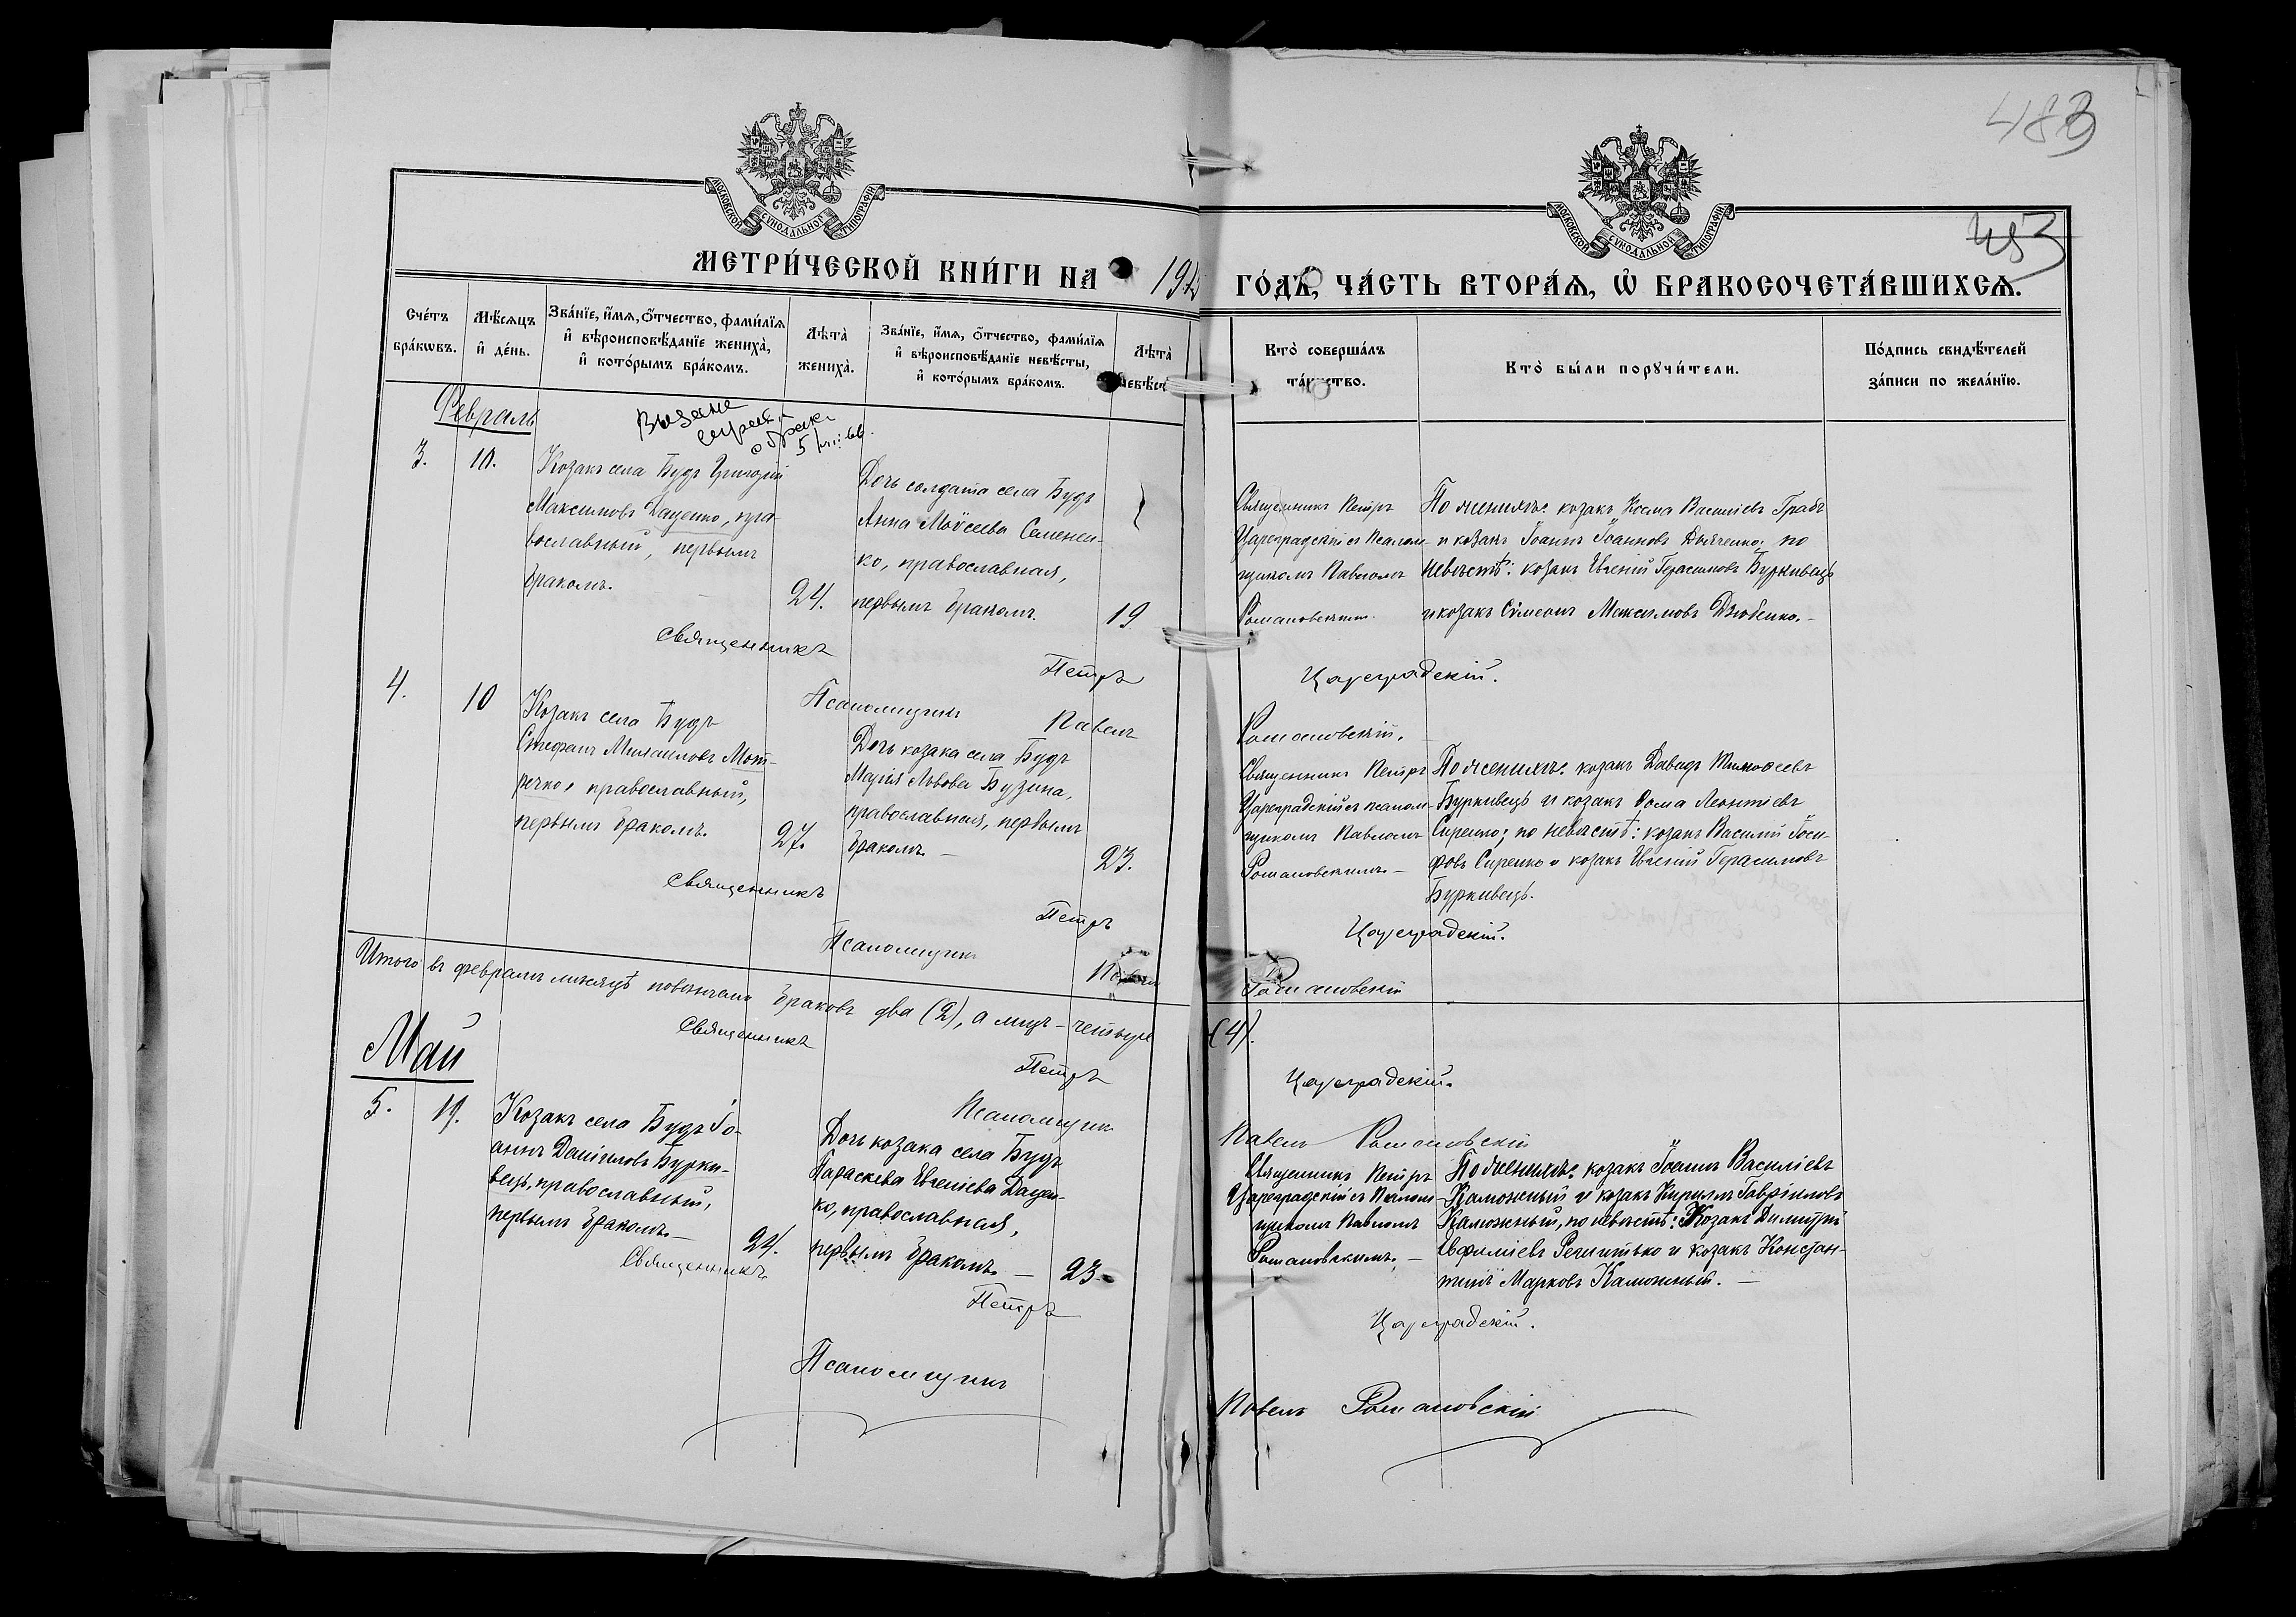 483
483
МОСКОВСКОЙ СУНОДАЛЬНОЙ ТИПОГРАФІИ
МОСКОВСКОЙ СУНОДАЛЬНОЙ ТИПОГРАФІИ
МЕТРИ́ЧЕСКОЙ КНИ́ГИ НА 191 ГО́ДЪ, ЧА́СТЬ ВТОРА́Я, Ѡ БРАКОСОЧЕТА́ВШИХСЯ.
Сче́тъ бра́кѡвъ.
Мѣ́сяцъ и де́нь.
Зва́нїе, и́мя, ѻ́тчество, фами́лїя и вѣроисповѣ́данїе жениха̀, и кото́рымъ бра́комъ.
Лѣ́та жениха̀.
Зва́нїе, и́мя, ѻ́тчество, фами́лїя и вѣроисповѣ́данїе невѣ́сты, и кото́рымъ бра́комъ.
Лѣ́та невѣ́ст
Кто̀ соверша́лъ та́инство.
Кто̀ бы́ли порꙋчи́тели.
По́дпись свидѣ́телей за́писи по жела́нїю.
Февраль
о браке
3. 10.
Козакъ села Будъ Григорій
Максимовъ Даценко, пра-
вославный, первымъ
бракомъ.
24.
Дочь солдата села Будъ
Анна Моѵсеева Семенен-
ко, православная,
первымъ бракомъ.
19.
Священникъ Петръ
Цареградскій съ псалом-
щикомъ Павломъ
Романовскимъ.
По женихѣ: козакъ Косма Василіевъ Грабъ
и козакъ Іоаннъ Іоанновъ Дьяченко; по
невѣстѣ: козакъ Евгеній Герасимовъ Буркивець
и козакъ Сѵмеонъ Максимовъ Дзюбенко.-
Священникъ Петръ Цареградскій.
Псаломщикъ Павелъ Романовскій.
4. 10
Козакъ села Будъ
Стефанъ Михаиловъ Мот-
речко, православный,
первымъ бракомъ.
27.
Дочь козака села Будъ
Марія Львова Бузина,
православная, первымъ
бракомъ. —
23.
Священникъ Петръ
Цареградскій съ псалом-
щикомъ Павломъ
Романовскимъ. —
По женихѣ: козакъ Давидъ Тимоѳеевъ
Буркивець и козакъ Ѳома Леонтіевъ
Сиренко; по невѣстѣ: козакъ Василій Іоси-
фовъ Сиренко и козакъ Евгеній Герасимовъ
Буркивець.
Священникъ Петръ Цареградскій.
Псаломщикъ Павелъ Романовскій
Итого въ февралѣ мѣсяцѣ повѣнчано браковъ два (2), а лицъ - четыре (4).
Священникъ Петръ Цареградскій.
Псаломщикъ Павелъ Романовскій
Май
5. 19.
Козакъ села Будъ Іо-
аннъ Даніиловъ Бурки-
вець, православный,
первымъ бракомъ. —
24.
Дочь козака села Будъ
Параскева Евгеніева Дацен-
ко, православная,
первымъ бракомъ. —
23.
Священникъ Петръ
Цареградскій съ псалом-
щикомъ Павломъ
Романовскимъ. —
По женихѣ: козакъ Іоаннъ Василіевъ
Калюжный и козакъ Кириллъ Гавріиловъ
Калюжный, по невѣстѣ: Козакъ Димитрій
Евфиміевъ Решитько и козакъ Констан-
тинъ Марковъ Калюжный. —
Священникъ Петръ Цареградскій.
Псаломщикъ Павелъ Романовскій